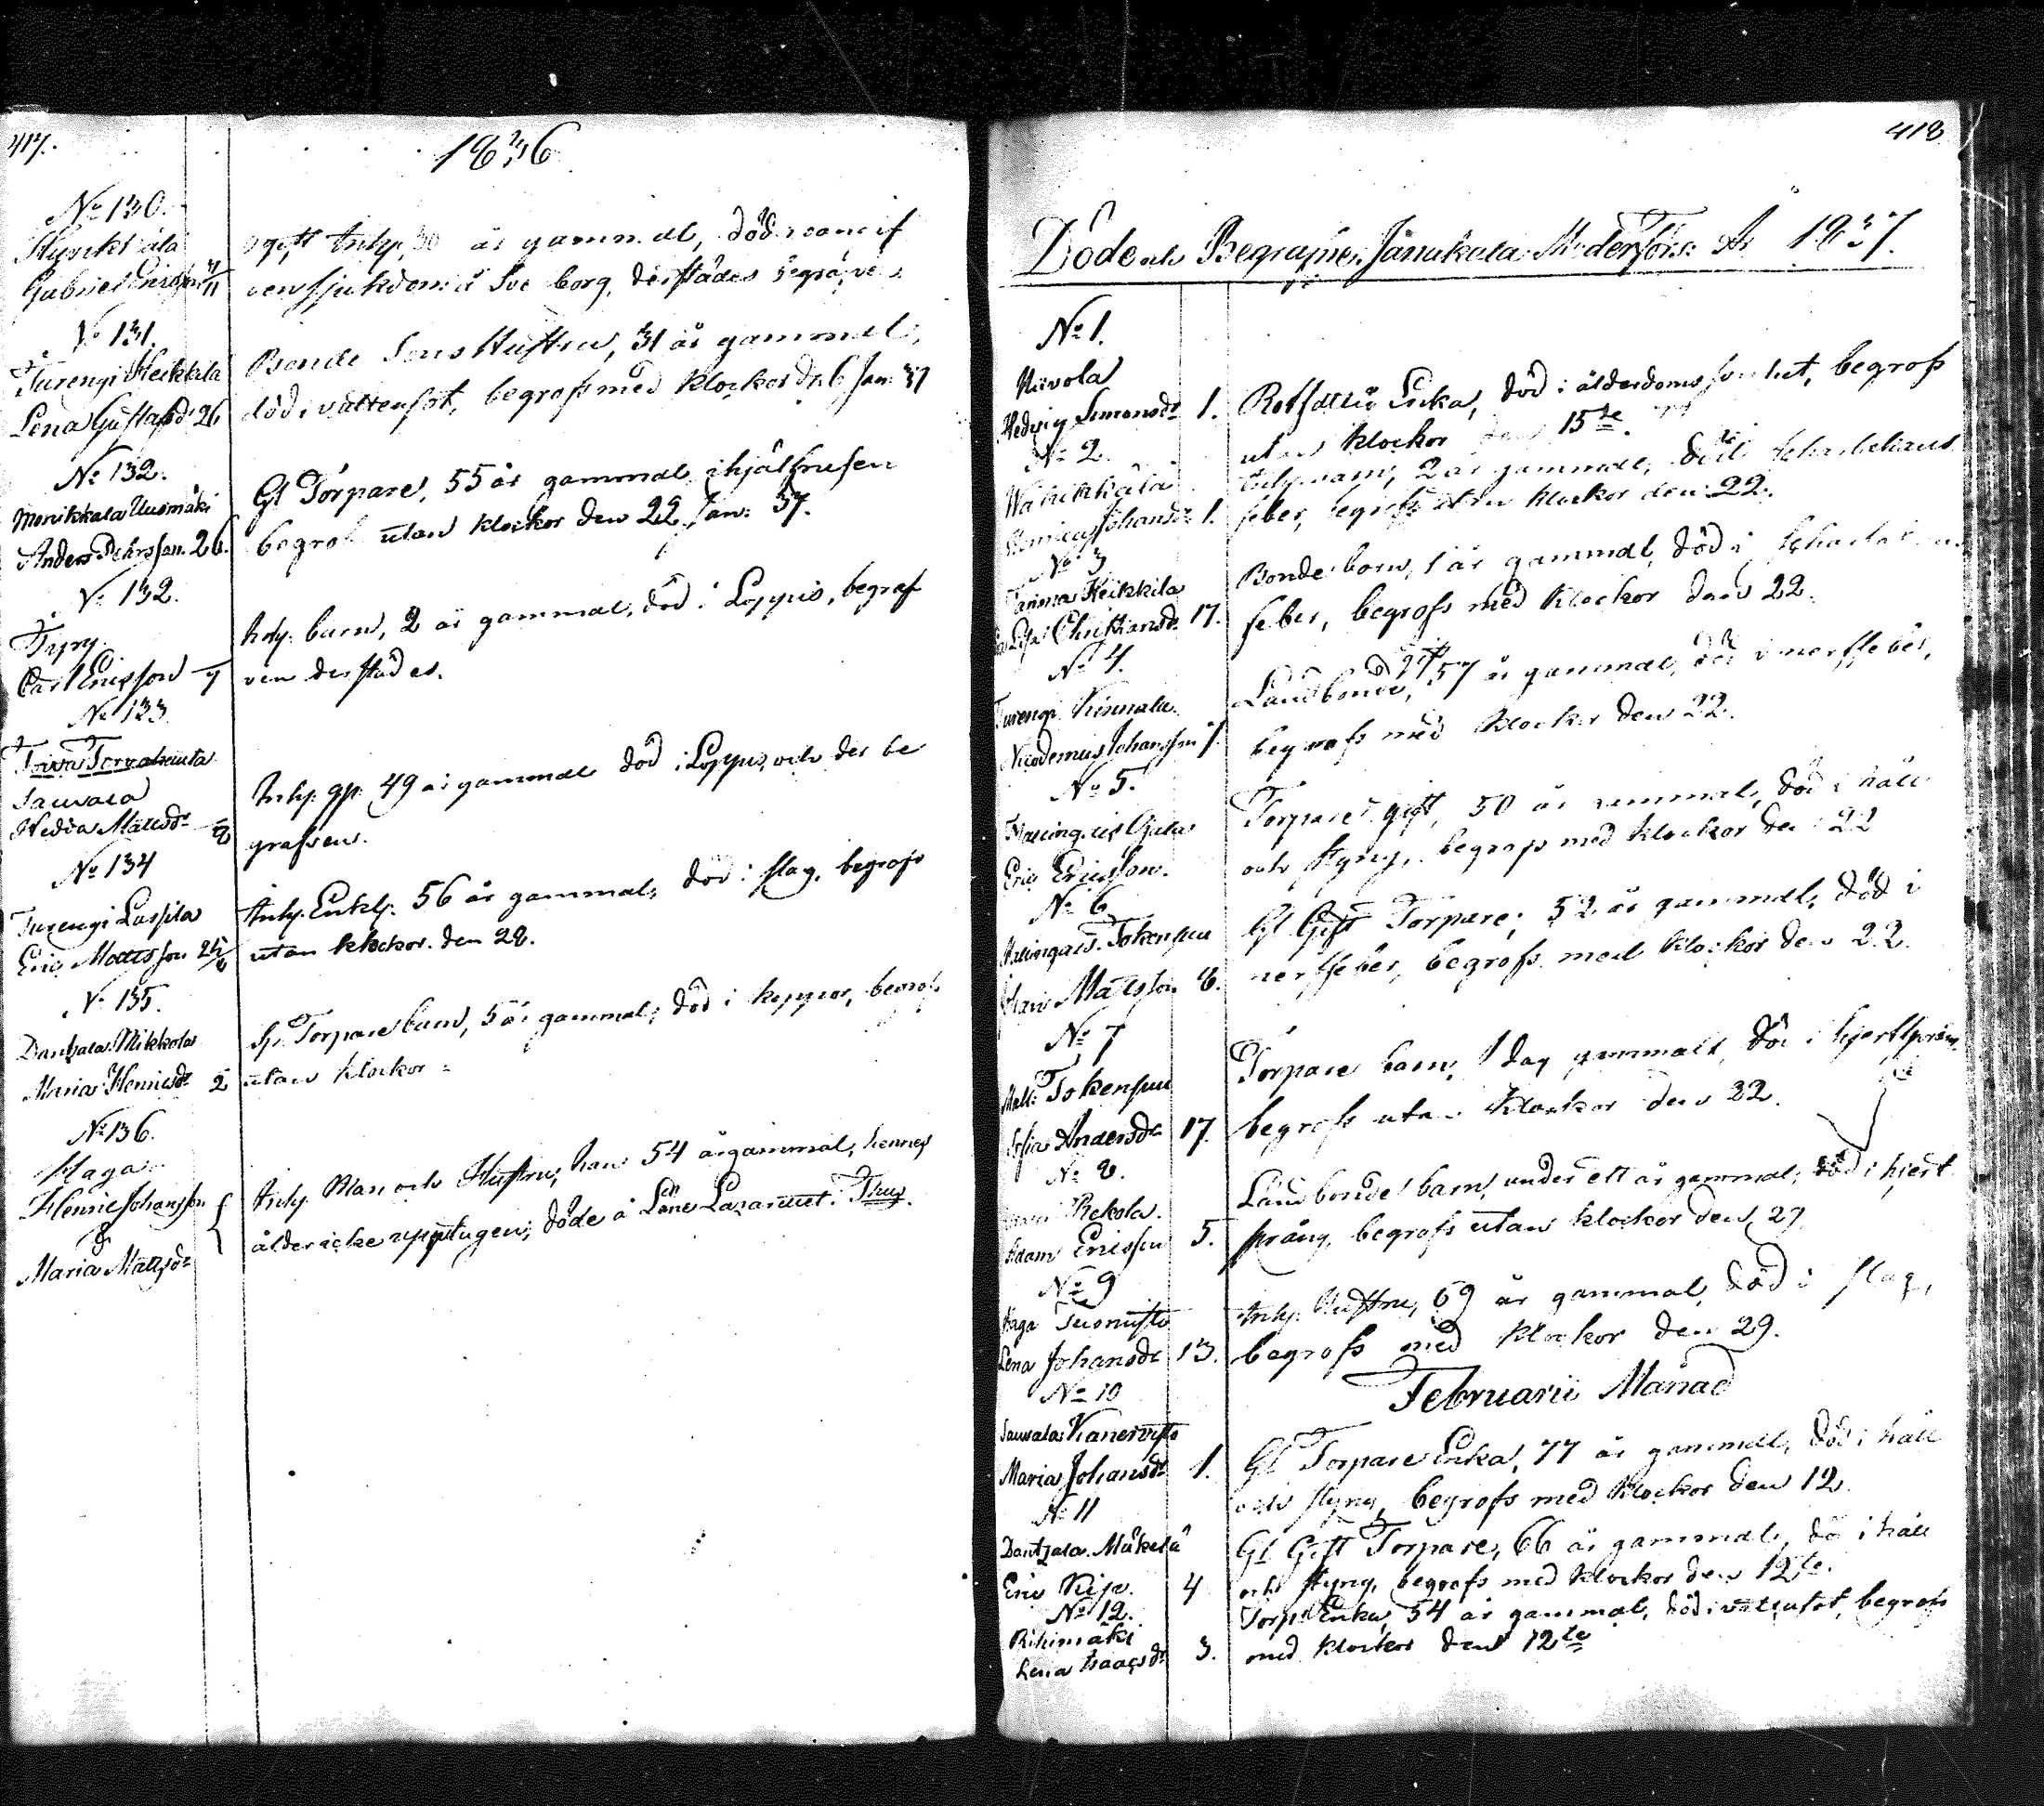 417.
1836
No 130.
Gabriel
ogift Inhy. 30 år gammal, död i
sjukdom å Sveaborg, derstädes begraven
No 131.
Turengi Heikkilä
Lena Gustafsdr 26
Bonde Sons Hustru, 31 år gammal,
död i vattensot, begrofs med klockor d. 6 Jan: 37
No 132.
Monikkala Uusmäki
Anders Pehrsson. 26.
Gl Torpare, 55 år gammal, ihjälfrusen
begrof utan klockor den 22 Jan: 37.
No 132.
Carl Ericsson 7
Inhy. barn, 2 år gammal, död i Loppis, begraf
ven derstädes.
No 133.
Toiva Torvalanita
Sauvala
Hedda Mattsdr
Inhy. gp. 49 år gammal död i Loppis, och der be
grafven.
No 134
Turengi Lassila
Eric Mattsson 25/8
Inhy. Enkl: 56 år gammal, död i slag, begrofs
utan klockor. den 28.
No 135.
Dantzala Mikkola
Maria Henricsdr 2
Gl. Torpare barn, 5 år gammal, död i koppor, begrofs
utan klockor
No 136.
Haga
Henric Johansson
&
Maria Mattsdr
Inhy. Man och Hustru, han 54 år gammal, hennes
ålder icke upptagen; döde å Läne Lazarettet.
418
Döde och Begrafne i Janakkala Moderförs: År 1837.
No 1.
Niivola
Hedvig Simonsdr 1.
Rotfattig Enka, död i ålderdoms svaghet, begrofs
utan klockor den 15de.
No 2.
Johansdr 1.
Inhy. barn, 2 år gammal, död i Scharlakans
feber, begrofs utan klockor den 22.
No 3
Heikkilä
Christiansdr 17.
Bonde barn, 1 år gammal, död i Scharlakans
feber, begrofs med klockor den 22.
No 4.
Turengi
Nicodemus Johansson 7.
gift
Landbonde, 57 år gammal, död i nerffeber,
begrofs med klockor den 22.
No 5.
Eric Ericsson.
Torpare gift, 50 år gammal, död i håll
och styng, begrofs med klockor den 22
No 6
Tokensuu
Mattsson 8.
Gl Gift Torpare, 52 år gammal, död i
nerffeber, begrofs med klockor den 22.
No 7
Tokensuu
Sofia Andersdr 17.
Torpare barn, 1 dag gammalt, död i hjertsprång
begrofs utan klockor den 22.
No 8.
Rekola.
Adam Ericsson 5.
Landbonde barn, under ett år gammal, död i hjert
språng, begrofs utan klockor den 29
No 9
Haga Tuomisto
Lena Johansdr 13.
Inhy. Hustru, 69 år gammal, död i slag,
begrofs med klockor den 29.
Februarii Månad
No 10
Sauvala Kanervisto
Maria Johansdr 1.
Gl Torpare Enka, 77 år gammal, död i håll
och styng, begrofs med klockor den 12
No 11
Dantzala Mäkelä
Eric 4
Gl Gift Torpare, 66 år gammal, dö i håll
och styng, begrofs med klockor den 12te.
No 12.
Riihimäki
Lena Isaacsdr 3.
Torp. Enka, 54 år gammal, död i vattensot, begrofs
med klockor den 12te